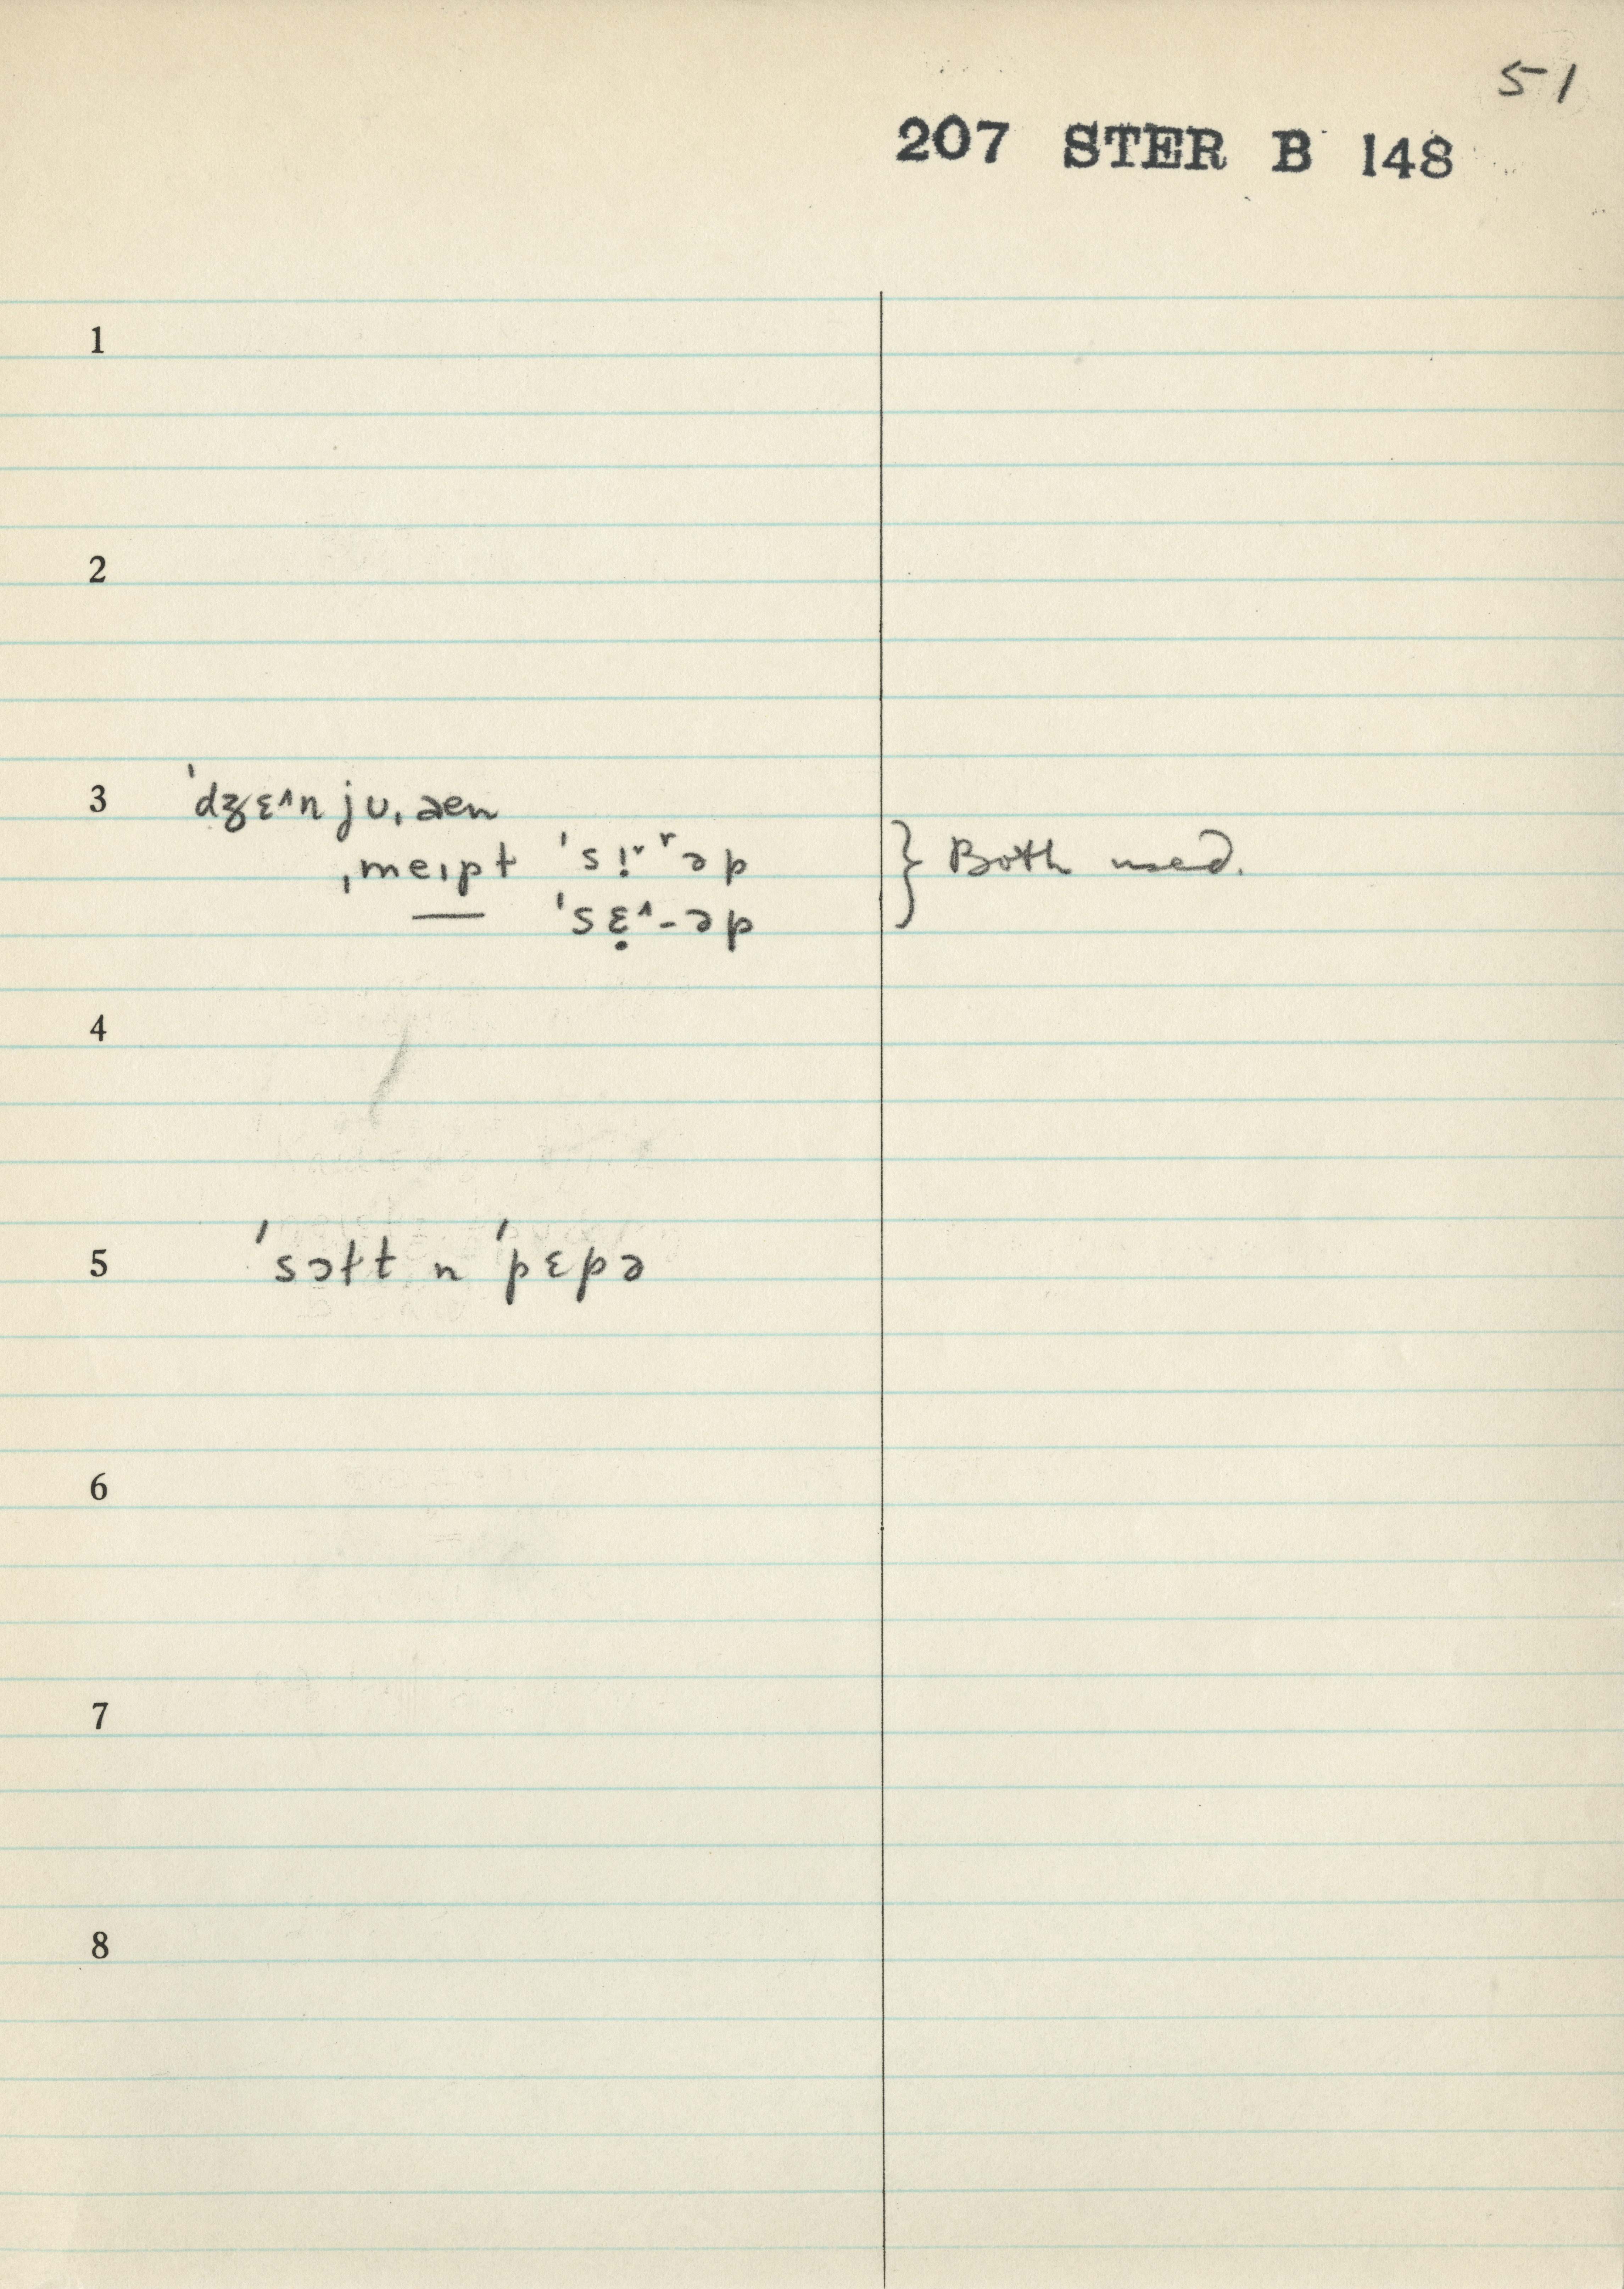 51
207 STER B 148
1
2
3 ˈdʒɛ^n jʊˌæn
ˌmeɪpɫ ˈsɪ̣˅˅əp
— ˈsɛ̣^-əp
} Both used.
4
5 ˈsɔɫt n ˈpɛpə
6
7
8